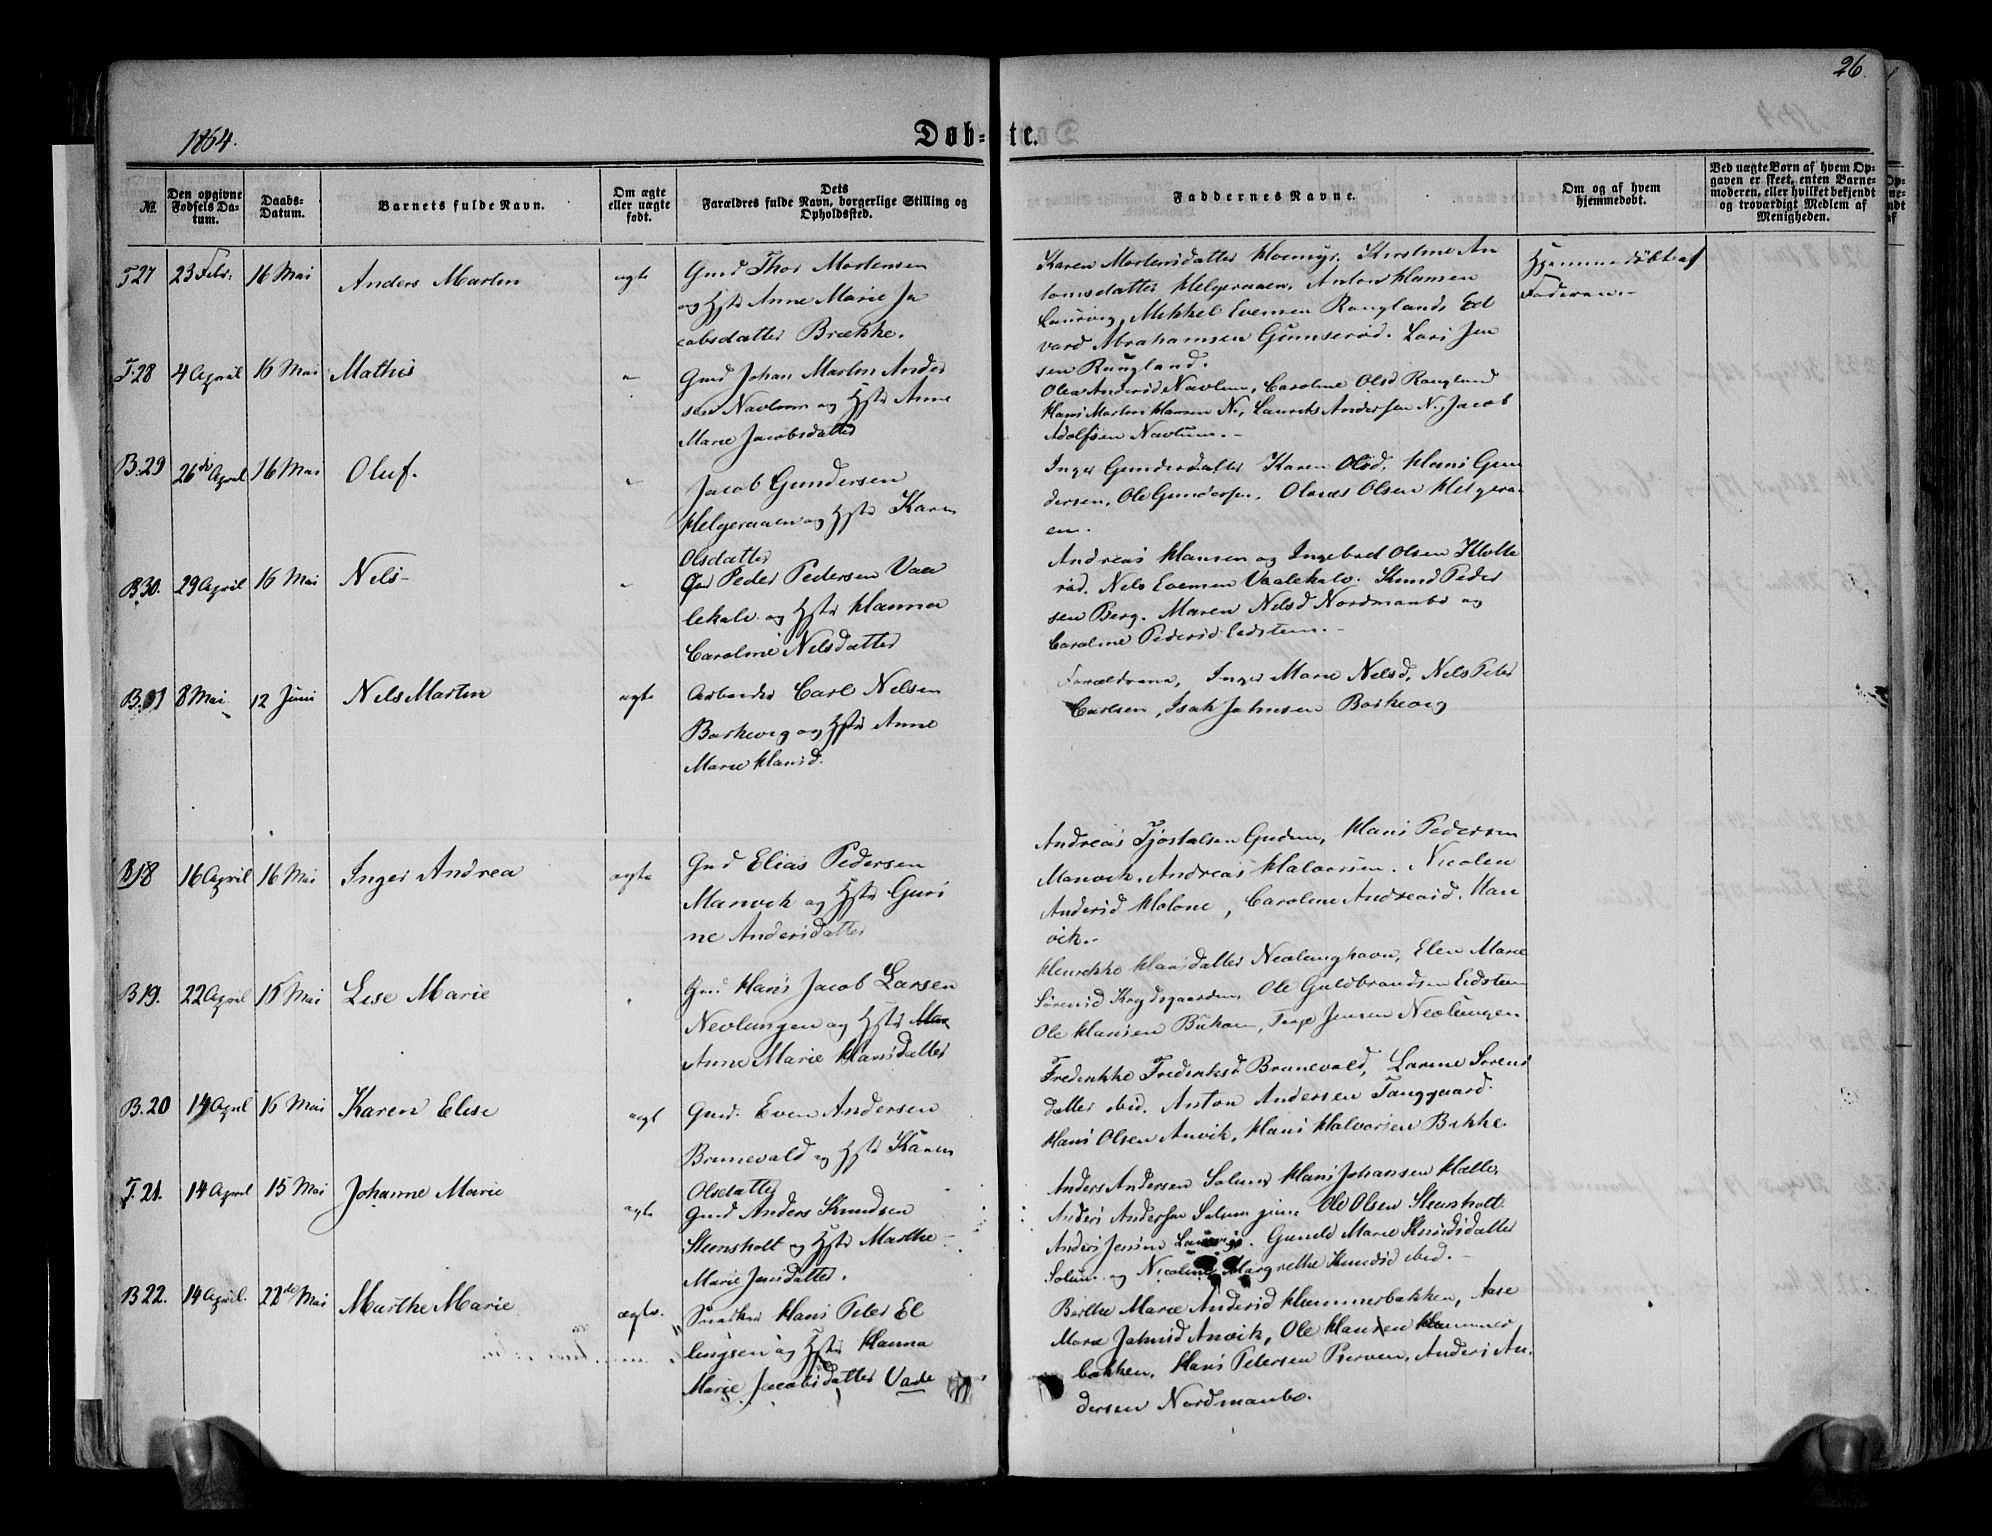 26.
1864.
Døb-te.
№
Den opgivne Fødsels Datum.
Daabs-Datum.
Barnets fulde Navn.
Om ægte eller uægte født.
Dets Forældres fulde Navn, borgerlige Stilling og Opholdssted.
Faddernes Navne.
Om og af hvem hjemmedøbt.
Ved uægte Børn af hvem Opgaven er skeet, enten Barnemoderen, eller hvilket bekjendt og troværdigt Medlem af Menigheden.
T 27 23 Febr. 16 Mai Anders Martin ægte
Gmd Thor Mortensen
og Hstr Anne Marie Ja
cobsdatter Brække.
Karen Mortensdatter Kirstine An
tonsdatter Helgeraaen, Anton Hansen
Laurvig, Mikkel Evensen Rougland, Ed
vard Abrahamsen Gumserød. Lars Jen
sen Rougland.
Hjemmedøbt af
Faderen.-
T. 28 4 April 16 Mai Mathis "
Gmd Johan Martin Ander
sen Navlum og Hstr Anne
Marie Jacobsdatter
Olea Andersd Navlum, Caroline Olsd Rougland
Hans Martin Hansen N., Laurits Andersen N., Jacob
Adolfsen Navlum.-
B. 29 26de April 16 Mai Oluf. "
Jacob Gundersen
Helgeraaen og Hstr Karen
Olsdatter
Inger Gundersdatter Karen Olsd. Hans Gun
dersen, Ole Gundersen, Olaves Olsen Helgeraa-
en.
B 30. 29 April 16 Mai Nels- "
Gmd Peder Pedersen Vaa
lekalv. og Hstr Hanna
Caroline Nelsdatter
Andreas Hansen og Ingebod Olsen Klotte
rød. Nels Evensen Vaalekalv. Knud Peder
sen Berg. Maren Nelsd Nordmanbø og
Caroline Pedersd Eidsten.-
B. 31 8 Mai 12 Juni Nels Martin ægte
Arbeider Carl Nelsen
Barkevig og Hstr Anne
Marie Hansd.
Forældrene, Inger Marie Nelsd, Nels Peter
Carlsen, Isak Johnsen Barkevig
B 18 16 April 16 Mai Inger Andrea ægte
Gmd Elias Pedersen
Manvik og Hstr Guri
ne Andersdatter
Andreas Tjøstalsen Gudem, Hans Pedersen
Manvik. Andreas Halvorsen. Nicolen
Andersd Holone, Caroline Andreasd. Man
vik.-
B 19. 22 April 16 Mai Lese Marie "
Gmd Hans Jacob Larsen
Nevlungen og Hstr Mar
Anne Marie Hansdatter
Henrikke Hansdatter Nevlunghavn, Elen Marie
Sørensd Krydsgaarden, Ole Guldbrandsen Eidsten
Ole Hansen Buhavn, Terje Jensen Nevlungen
B. 20 14 April 16 Mai Karen Elise ægt
Gmd. Even Andersen
Brunevald og Hstr Karen
Olsdatter
Fredrikke Frederiksd Brunevald, Larine Sørens
datter ibid. Anton Andersen Tanggaard.
Hans Olsen Anvik, Hans Halvorsen Bakke.
T. 21. 14 April 15 Mai Johanne Marie ægte
Gmd Anders Knudsen
Stensholt og Hstr Marthe
Marie Jensdatter.
Anders Andersen Solum, Hans Johansen Halle,
Anders Andersen Solum jun. Ole Olsen Stensholt
Anders Jensen Laurvig. Gunild Marie Knudsdatter
Solum og Nicoline Margrethe Knudsd ibid.-
B 22. 14 April. 22de Mai Marthe Marie ægte.
Snedker Hans Peter El
lingsen og Hstr Hanna
Marie Jacobsdatter Vade
Berthe Marie Andersd Hummerbakken, Aase
Marie Johnsd Anvik, Ole Hansen Hummer
bakken, Hans Petersen Rerven, Anders An.
dersen Nordmanbø.